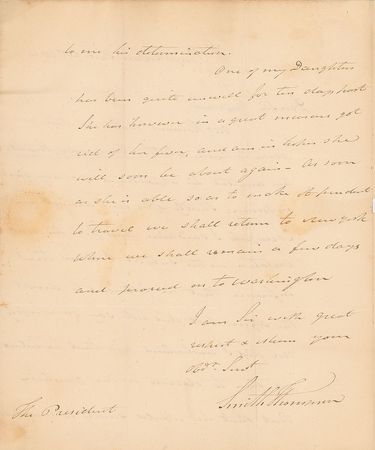 to me his determination.
One of my Daughters
has been quite unwell for ten days past
She has however in a great measure got
rid of her fever, and am in hopes she
will soon be about again - As soon
as she is able so as to make it prudent
to travel we shall return to New York
where we shall remain a few days
and proceed on to Washington
I am Sir with great
respect & esteem your
Obdt. Servt
Smith Thompson
The President